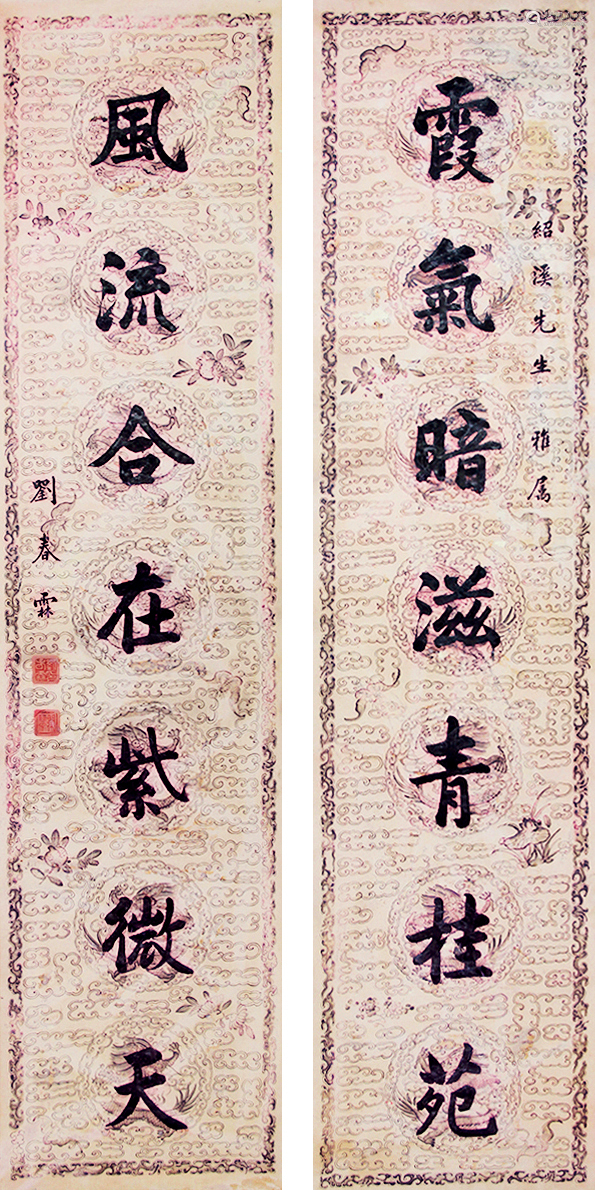 紹溪先生雅属
霞氣暗滋青桂苑
風流合在紫微天
劉春霖